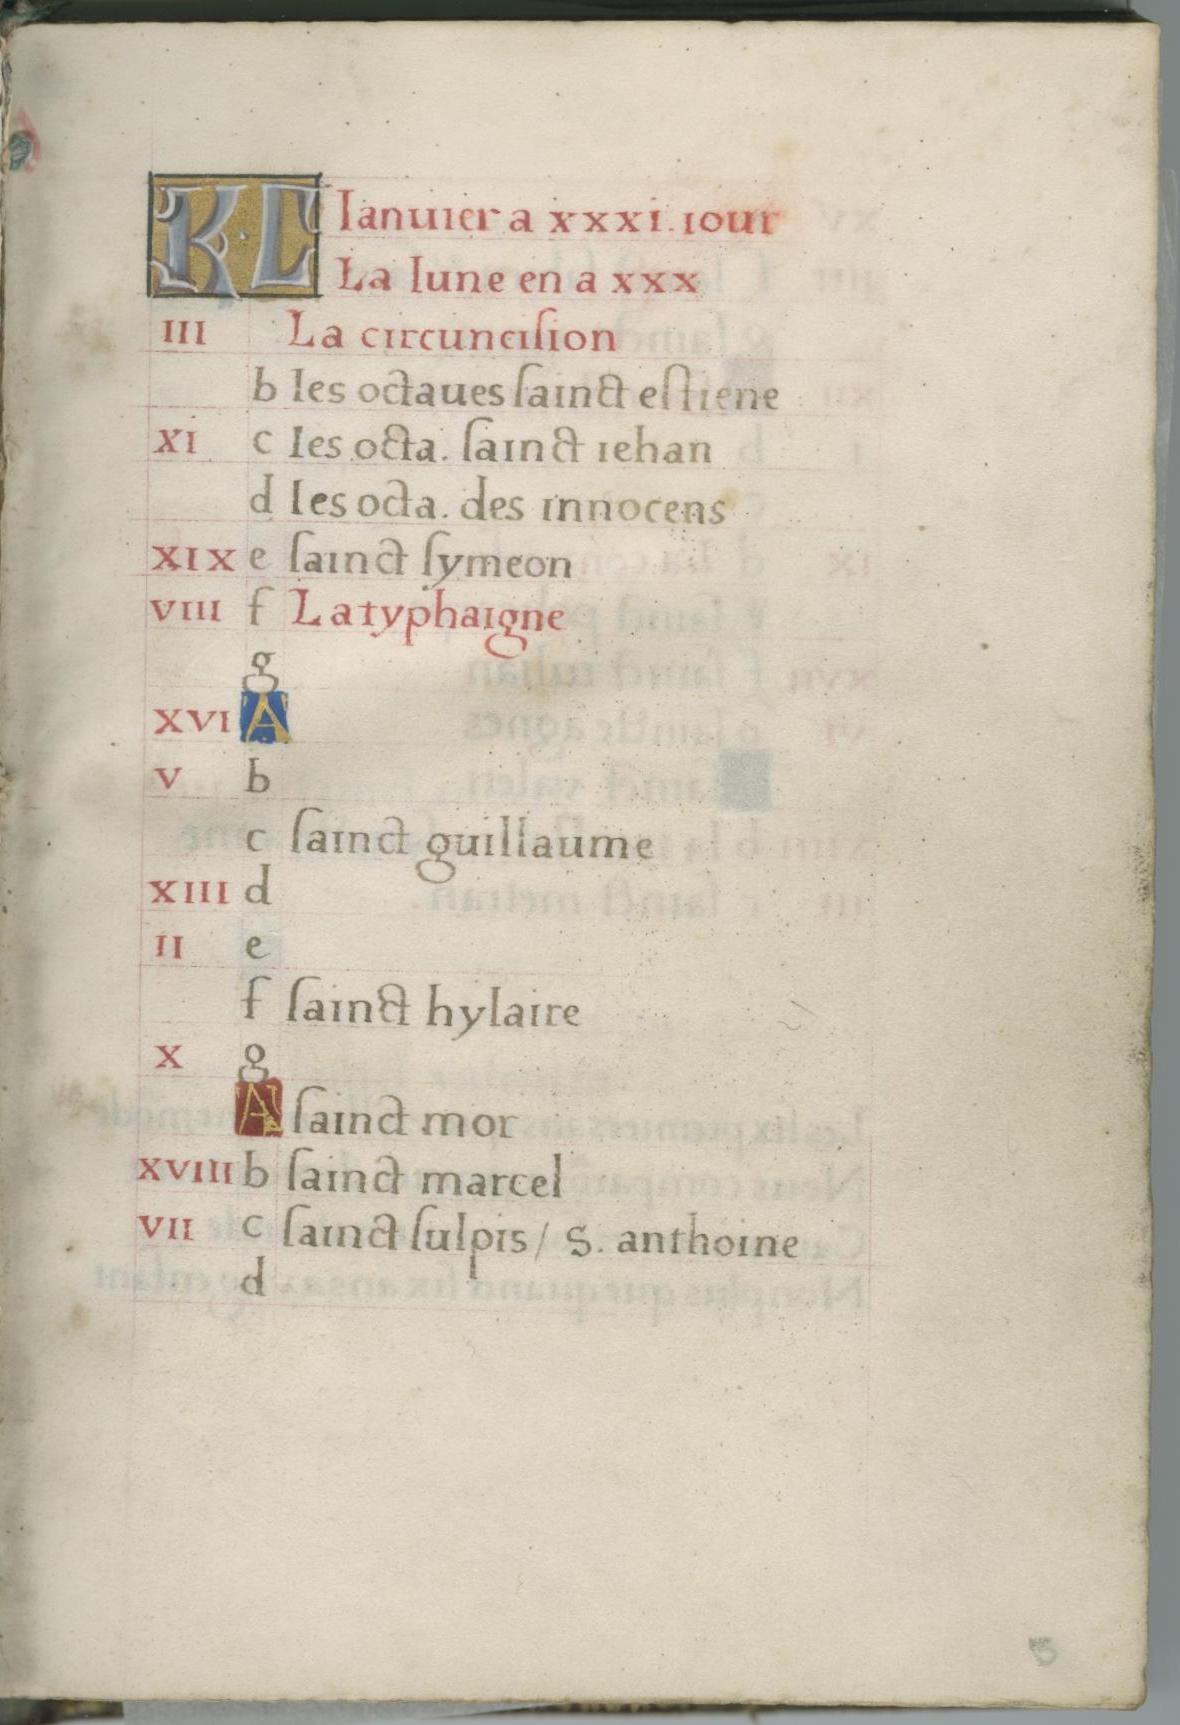 KL Ianuier a xxxi. iour
La lune en a xxx
III La circunciſion
b les octaues ſainct eſtiene
XI c les octa. ſainct iehan
d les octa. des innocens
XIX e ſainct ſymeon
VIII f La typhaigne
g
XVI A
V b
c ſainct guillaume
XIII d
II e
f ſainct hylaire
X g
A ſainct mor
XVIII b ſainct marcel
VII c ſainct ſulpis / S. anthoine
d
3